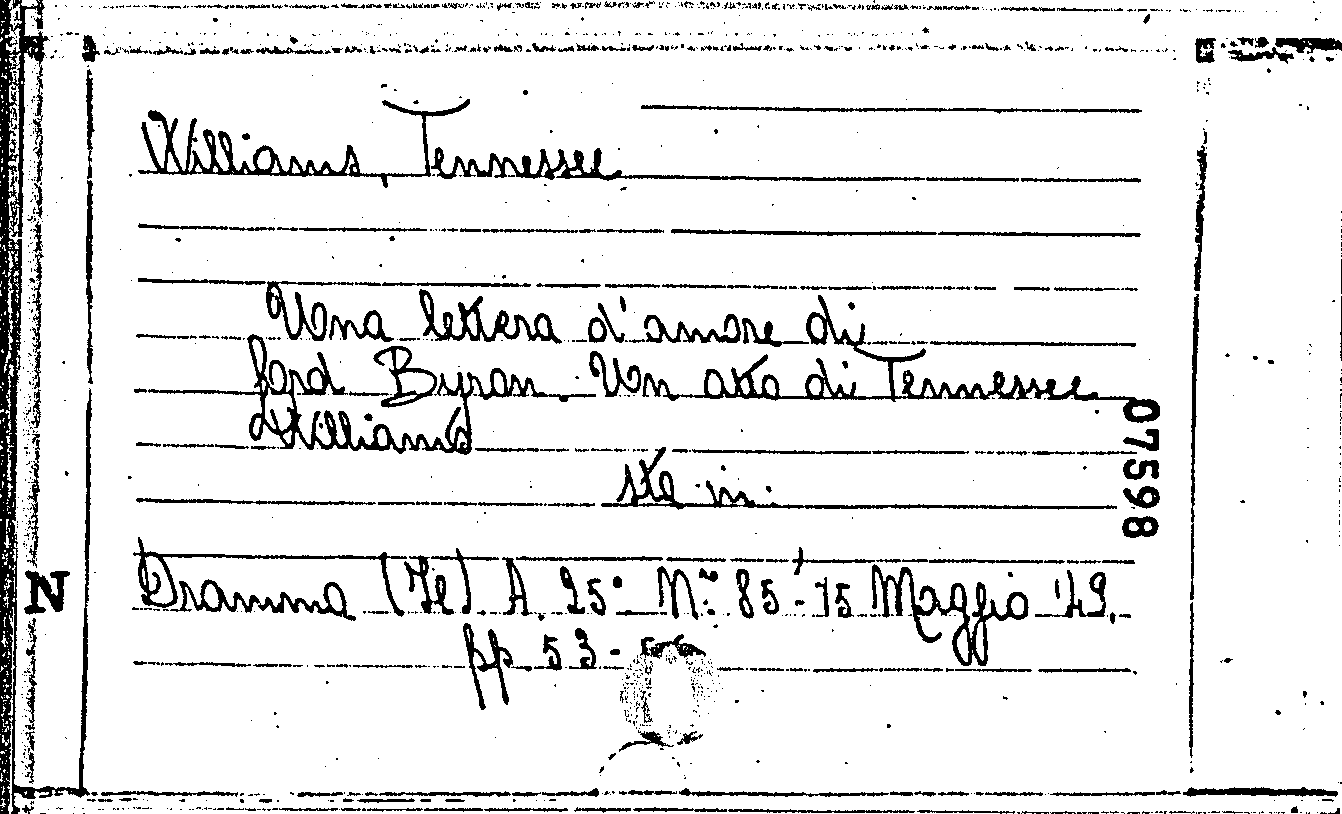 Williams, Tennessee
Una lettera d'amore di
Lord Byron. Un atto di Tennessee
Williams
sta in:
Dramma (Il) A. 25° N.° 85 - 15 Maggio '49.
pp. 53-
07598
N